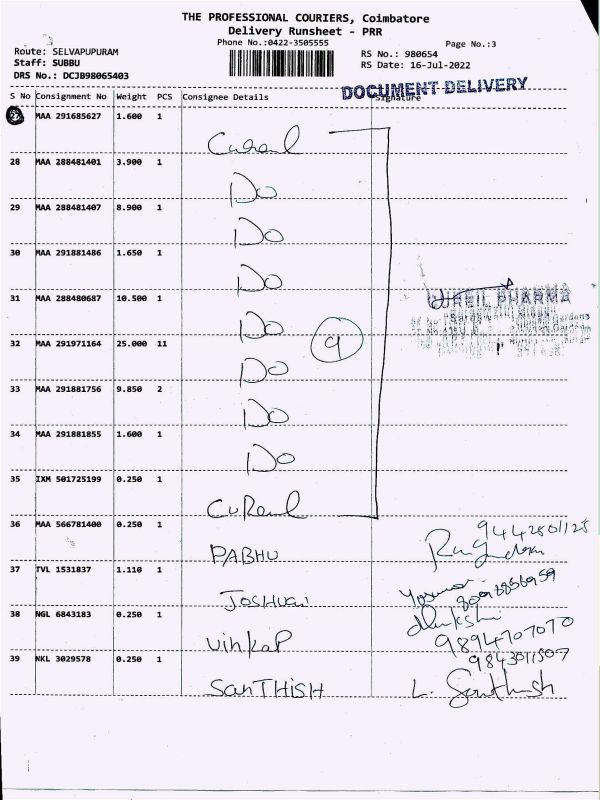 THE PROFESSIONAL COURIERS, Coimbatore
Delivery Runsheet - PRR
Phone No.:0422-3505555
Page No.:3
Route: SELVAPUPURAM
Staff: SUBBU
DRS No.: DCJB98065403
RS No.: 980654
RS Date: 16-Jul-2022
DOCUMENT DELIVERY
S No Consignment No Weight PCS Consignee Details Signature
MAA 291685627 1.600 1
28 MAA 288481401 3.900 1 Do
29 MAA 288481407 8.900 1 Do
30 MAA 291881486 1.650 1 Do
31 MAA 288480687 10.500 1 Do
32 MAA 291971164 25.000 11 Do
9
33 MAA 291881756 9.850 2 Do
34 MAA 291881855 1.600 1 Do
35 IXM 501725199 0.250 1
PHARMA
36 MAA 566781400 0.250 1 PABHU 9442501125
37 TVL 1531837 1.110 1 JOSHUA
38 NGL 6843183 0.250 1 9894707070
39 NKL 3029578 0.250 1 SanTHISH 9843011507
L. Santhish